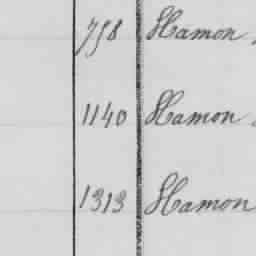 758 Hamon
1140 Hamon
1313 Hamon